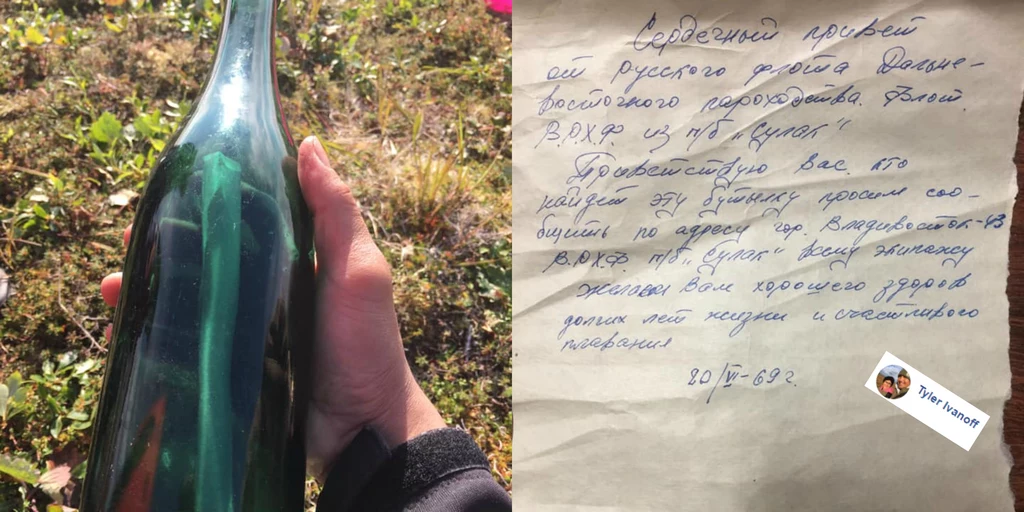 Сердечный привет
от русского флота Дальне-
восточного пароходства. Флот.
В.О.Х.Ф. из п/б „Сулак"
Приветствую Вас, кто
найдет эту бутылку просим соо-
бщить по адресу гор. Владивосток-43
В.О.Х.Ф. п/б „Сулак" всему экипажу
желаем Вам хорошего здоров
долгих лет жизни и счастливого
плавания
20/VI-69 г.
Tyler Ivanoff